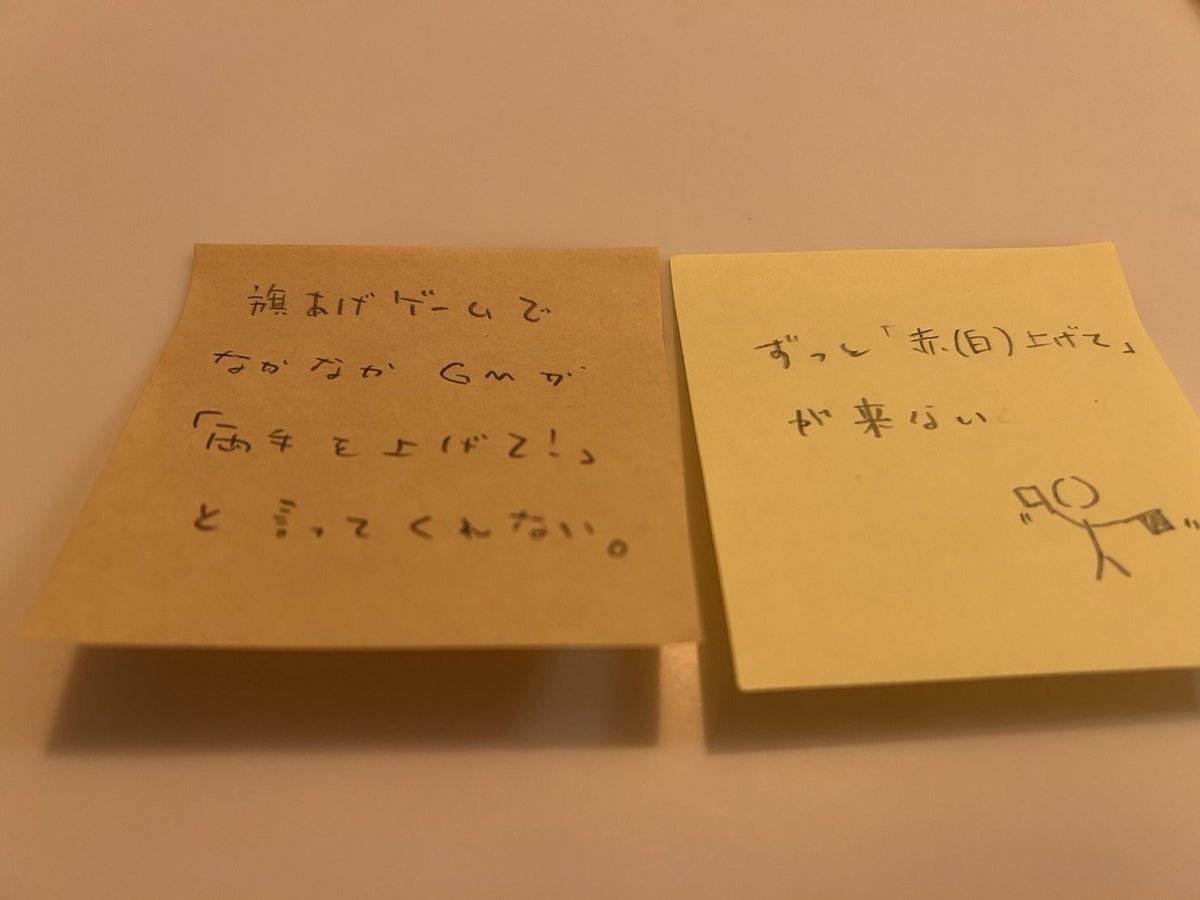 旗あげゲームで
なかなかGMが
「両手を上げて!」
と言ってくれない。
ずっと「赤(白)上げて」
が来ない